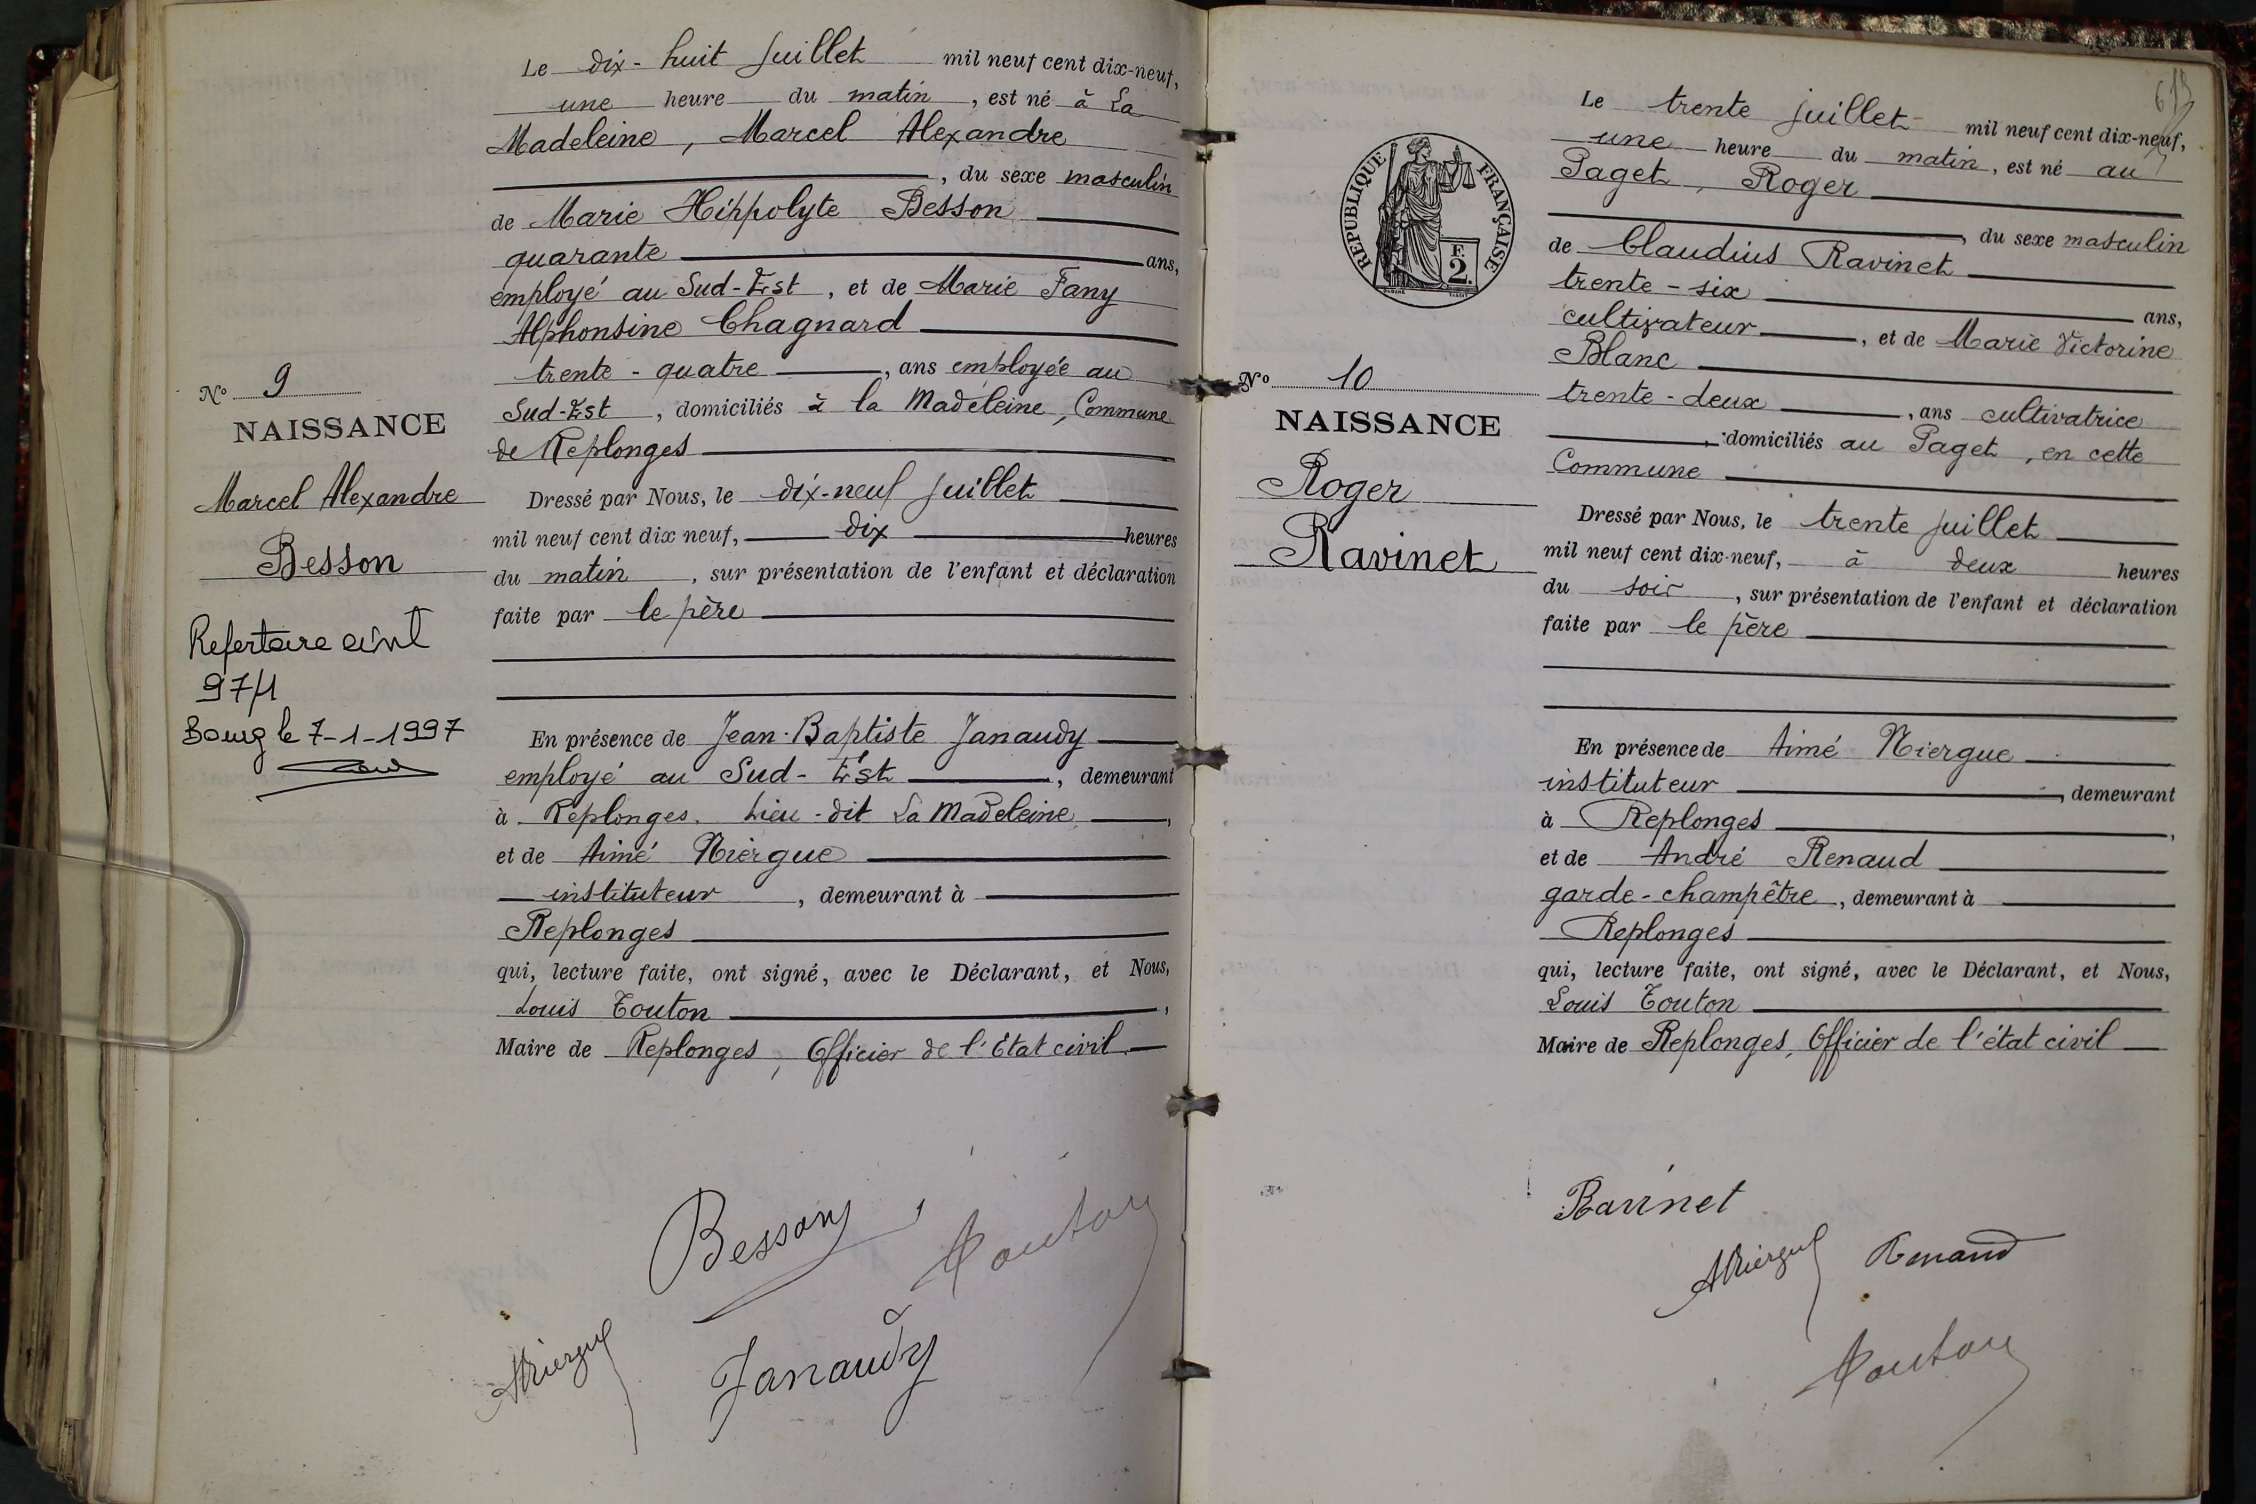 Le dix-huit Juillet mil neuf cent dix-neuf,
une heure du matin, est né à La
Madeleine, Marcel Alexandre
, du sexe masculin
de Marie Hippolyte Besson
quarante ans,
employé au Sud-Est, et de Marie Fany
Alphonsine Chagnard
trente-quatre, ans employée au
Sud-Est, domiciliés à la Madeleine, Commune
de Replonges
Dressé par Nous, le dix-neuf Juillet
mil neuf cent dix neuf, dix heures
du matin, sur présentation de l'enfant et déclaration
faite par le père
En présence de Jean-Baptiste Janaudy
employé au Sud-Est, demeurant
à Replonges. Lieu-dit La Madeleine,
et de Aimé Niergue
instituteur, demeurant à
Replonges
qui, lecture faite, ont signé, avec le Déclarant, et Nous,
Louis Touton,
Maire de Replonges, Officier de l'Etat civil.
No 9
NAISSANCE
Marcel Alexandre
Besson
Repertoire civil
97/1
Bourg le 7-1-1997
Besson
Touton
ANiergue
Janaudy
613
RÉPUBLIQUE FRANÇAISE
F.
2
No 10
NAISSANCE
Roger
Ravinet
Le trente juillet mil neuf cent dix-neuf,
une heure du matin, est né au
Paget, Roger
, du sexe masculin
de Claudius Ravinet
trente-six ans,
cultivateur, et de Marie Victorine
Blanc
trente-deux, ans cultivatrice
, domiciliés au Paget, en cette
Commune
Dressé par Nous, le trente Juillet
mil neuf cent dix-neuf, à deux heures
du soir, sur présentation de l'enfant et déclaration
faite par le père
En présence de Aimé Niergue
instituteur, demeurant
à Replonges,
et de André Renaud
garde-champêtre, demeurant à
Replonges
qui, lecture faite, ont signé, avec le Déclarant, et Nous,
Louis Touton
Maire de Replonges, Officier de l'état civil
Ravinet
ANiergue Renaud
Touton